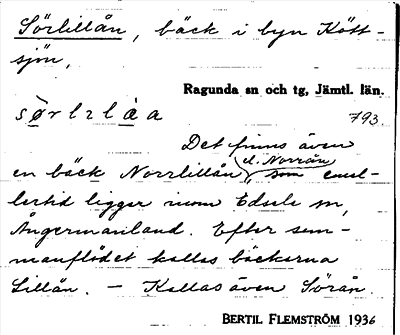 Sörlillån, bäck i byn Kött-
sjön,
Ragunda sn och tg, Jämtl. län.
793.
Det finns även
el. Norrån
en bäck Norrlillån, som emel-
lertid ligger inom Edsele sn,
Ångermanland. Efter sam-
manflödet kallas bäckarna
Lillån. – Kallas även Sörån.
BERTIL FLEMSTRÖM 1936